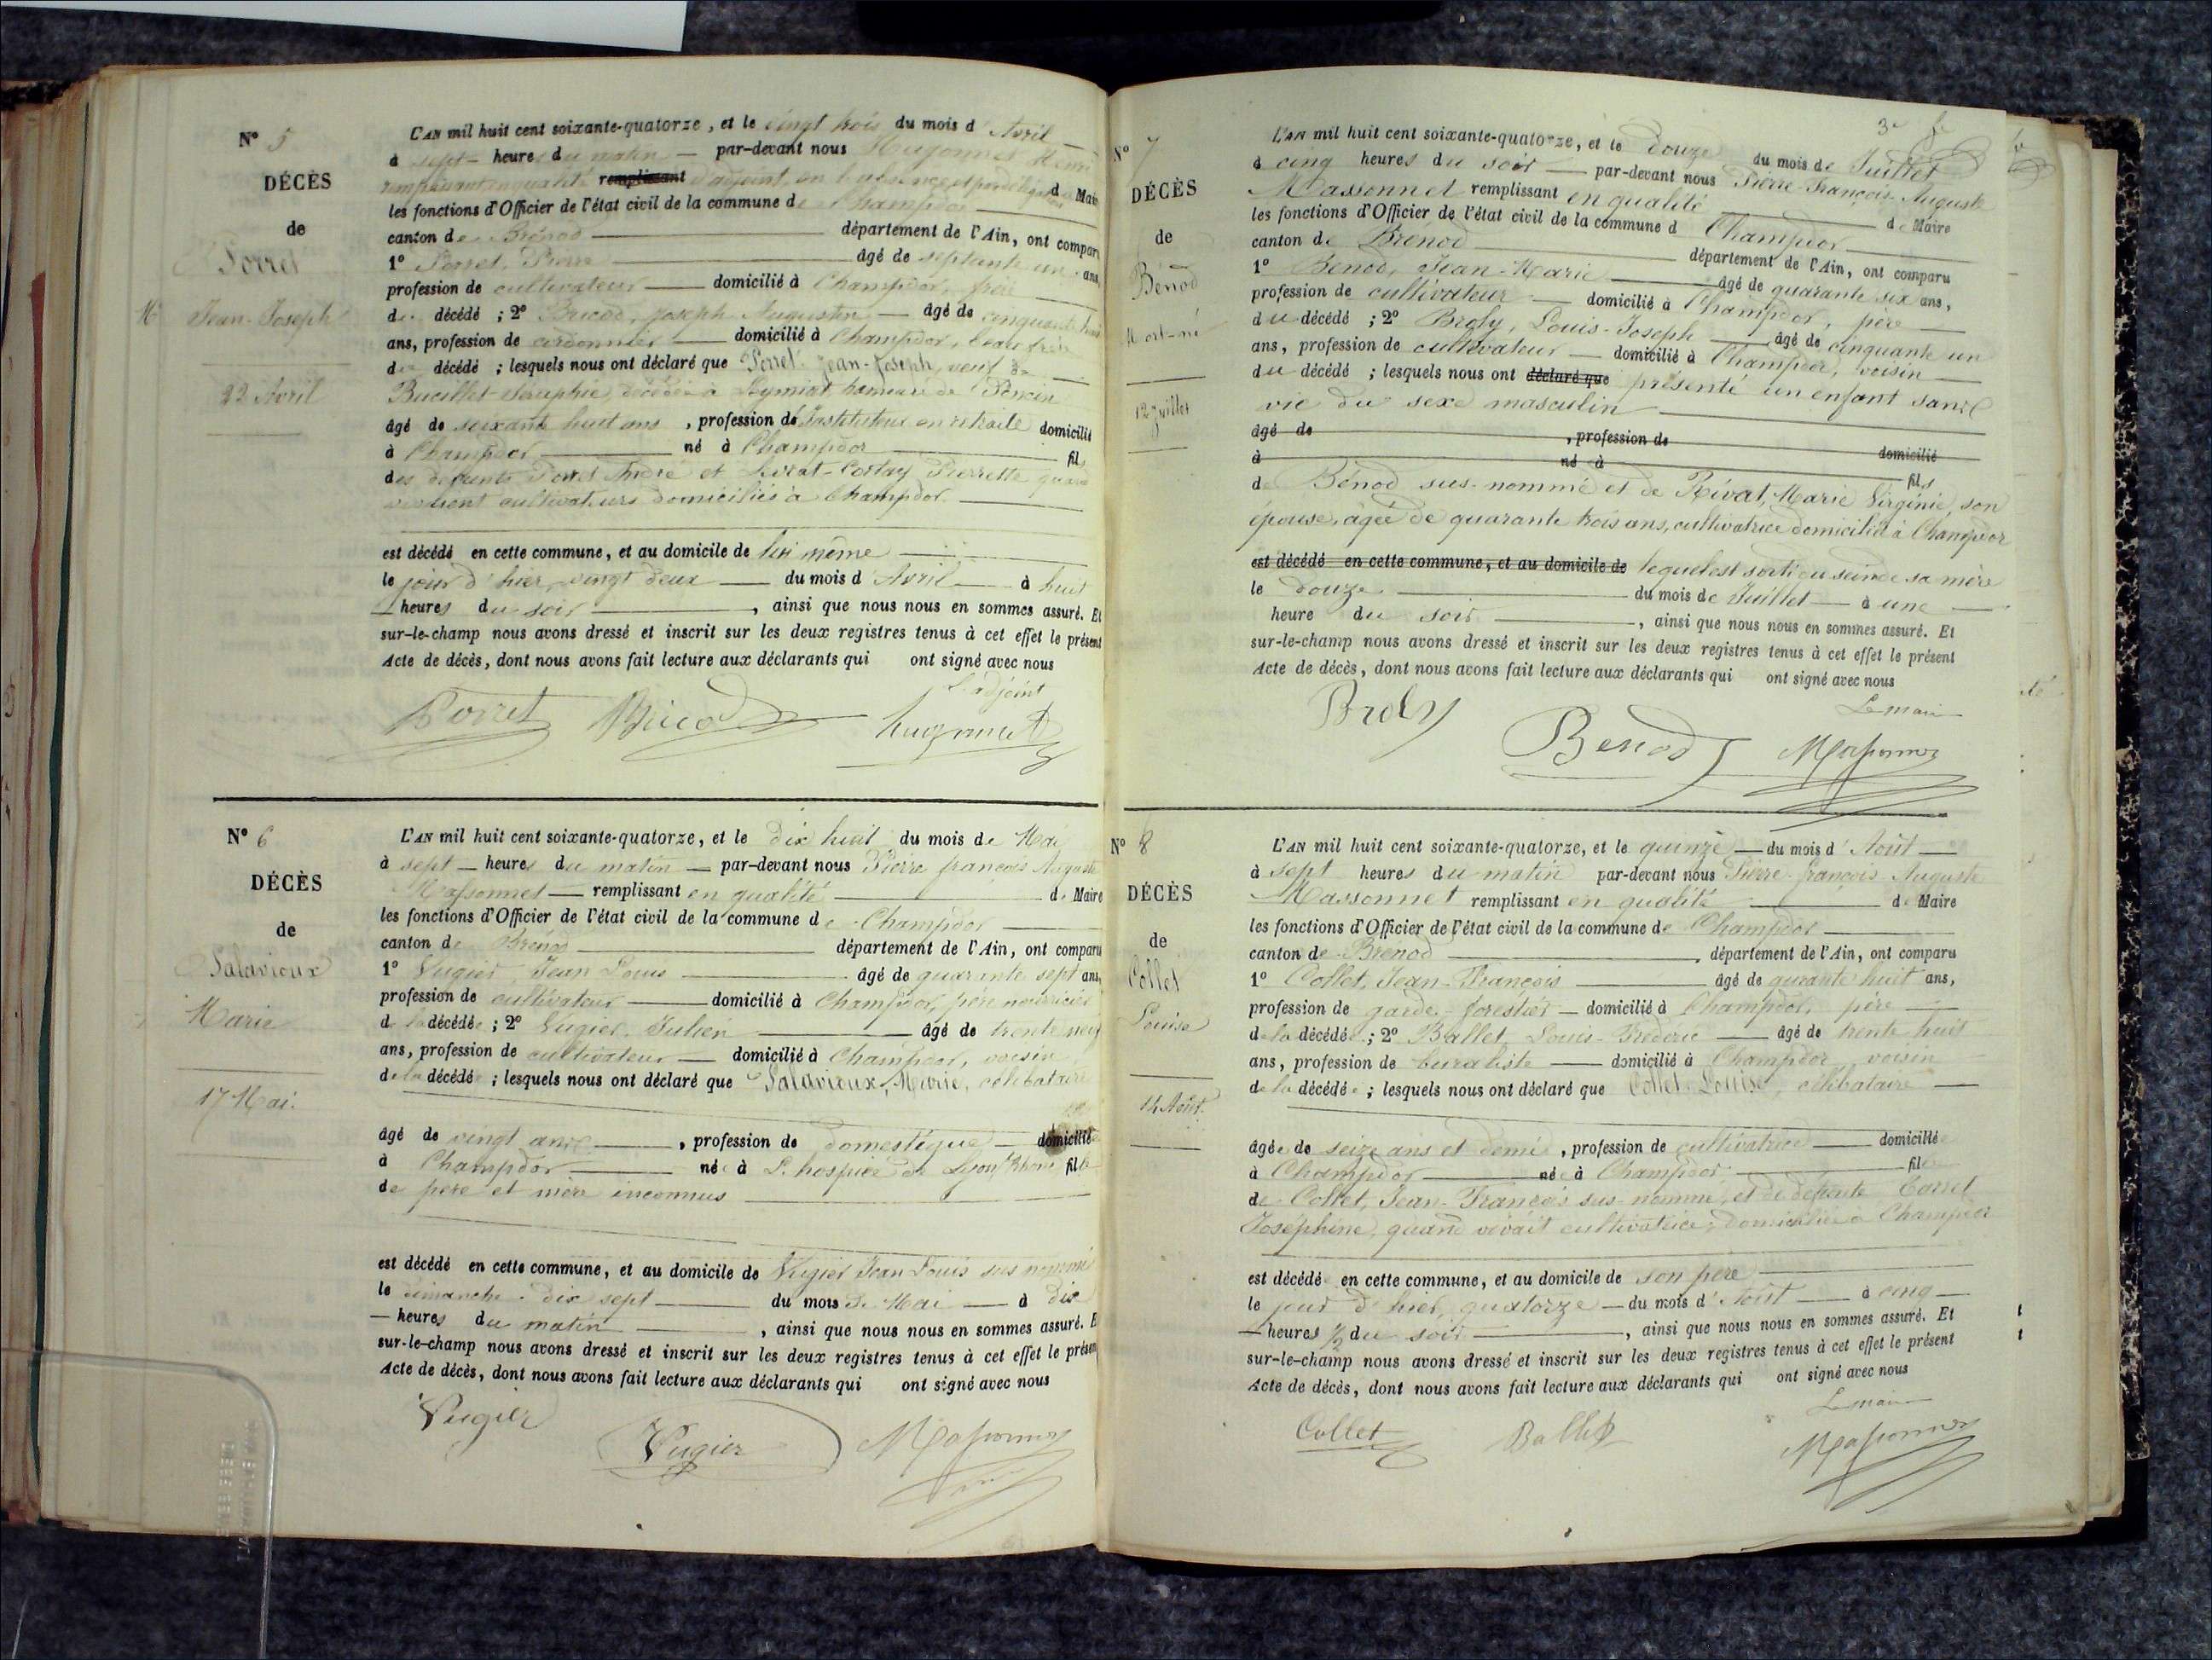 N° 5
DÉCÈS
de
Porret
Jean-Joseph
22 Avril
L'AN mil huit cent soixante-quatorze, et le vingt trois du mois d'Avril
à sept heures du matin par-devant nous Hugonnet
remplissant en qualité remplissant d'adjoint en l'absence et par délégation d Maire
les fonctions d'Officier de l'état civil de la commune de Champdor
canton de Brénod département de l'Ain, ont comparu
1° Porret, Pierre âgé de septante un ans,
profession de cultivateur domicilié à Champdor, frère
du décédé ; 2° Bricod, Joseph Augustin âgé de cinquante
ans, profession de cordonnier domicilié à Champdor, beau frère
du décédé ; lesquels nous ont déclaré que Porret Jean-Joseph, veuf de
Bucillet Séraphie, décédée à hameau de
âgé de soixante huit ans, profession d'Instituteur en retraite domicilié
à Champdor né à Champdor fils
des défunts Porret André et Pierrette quand
vivaient cultivateurs domiciliés à Champdor
est décédé en cette commune, et au domicile de lui même
le jour d'hier, vingt deux du mois d'Avril à huit
heures du soir, ainsi que nous nous en sommes assuré. Et
sur-le-champ nous avons dressé et inscrit sur les deux registres tenus à cet effet le présent
Acte de décès, dont nous avons fait lecture aux déclarants qui ont signé avec nous
L'adjoint
Porret Bricod Hugonnet
N° 6
DÉCÈS
de
Salavioux
Marie
17 Mai.
L'AN mil huit cent soixante-quatorze, et le dix huit du mois de Mai
à sept heures du matin par-devant nous Pierre françois Auguste
Massonnet remplissant en qualité de Maire
les fonctions d'Officier de l'état civil de la commune de Champdor
canton de Brénod département de l'Ain, ont comparu
1° Vugier Jean Louis âgé de quarante sept ans,
profession de cultivateur domicilié à Champdor, père nourricier
de la décédée ; 2° Vugier Julien âgé de trente neuf
ans, profession de cultivateur domicilié à Champdor, voisin
de la décédée ; lesquels nous ont déclaré que Salavioux, Marie, célibataire
âgé de vingt ans, profession de domestique domicilié
à Champdor née à L'hospice de Lyon, Rhône fille
de père et mère inconnus
est décédé en cette commune, et au domicile de Vugier Jean Louis sus nommé
le dimanche dix sept du mois de Mai à dix
heures du matin, ainsi que nous nous en sommes assuré. Et
sur-le-champ nous avons dressé et inscrit sur les deux registres tenus à cet effet le présent
Acte de décès, dont nous avons fait lecture aux déclarants qui ont signé avec nous
Vugier Vugier Massonnet
3e f
N° 7
DÉCÈS
de
Bénod
Mort-né
12 Juillet
L'AN mil huit cent soixante-quatorze, et le douze du mois de Juillet
à cinq heures du soir par-devant nous Pierre-François-Auguste
Massonnet remplissant en qualité de Maire
les fonctions d'Officier de l'état civil de la commune d Champdor
canton de Brenod département de l'Ain, ont comparu
1° Benod, Jean-Marie âgé de quarante six ans,
profession de cultivateur domicilié à Champdor, père
du décédé ; 2° Broly, Louis-Joseph âgé de cinquante un
ans, profession de cultivateur domicilié à Champdor, voisin
du décédé ; lesquels nous ont déclaré que présenté un enfant sans
vie du sexe masculin
âgé de , profession de domicilié
à né à fils
de Bénod sus-nommé et de Rivat, Marie Virginie, son
épouse, âgée de quarante trois ans, cultivatrice domiciliée à Champdor
est décédé en cette commune, et au domicile de lequel est sorti du sein de sa mère
le douze du mois de Juillet à une
heure du soir, ainsi que nous nous en sommes assuré. Et
sur-le-champ nous avons dressé et inscrit sur les deux registres tenus à cet effet le présent
Acte de décès, dont nous avons fait lecture aux déclarants qui ont signé avec nous
Le maire
Broly Benod Massonnet
N° 8
DÉCÈS
de
Collet
Louise
14 Août.
L'AN mil huit cent soixante-quatorze, et le quinze du mois d'Août
à sept heures du matin par-devant nous Pierre-françois-Auguste
Massonnet remplissant en qualité de Maire
les fonctions d'Officier de l'état civil de la commune de Champdor
canton de Brenod, département de l'Ain, ont comparu
1° Collet, Jean-François âgé de quarante huit ans,
profession de garde-forestier domicilié à Champdor, père
de la décédée ; 2° Ballet, Louis-Frédéric âgé de trente huit
ans, profession de buraliste domicilié à Champdor, voisin
de la décédée ; lesquels nous ont déclaré que Collet Louise, célibataire
âgée de seize ans et demi, profession de cultivatrice domiciliée
à Champdor née à Champdor fille
de Collet, Jean-François sus-nommé, et de défunte
Josephine, quand vivait cultivatrice, domiciliée à Champdor
est décédé en cette commune, et au domicile de son père
le jour d'hier, quatorze du mois d'Août à cinq
heures 1/2 du soir, ainsi que nous nous en sommes assuré. Et
sur-le-champ nous avons dressé et inscrit sur les deux registres tenus à cet effet le présent
Acte de décès, dont nous avons fait lecture aux déclarants qui ont signé avec nous
Le maire
Collet Ballet Massonnet